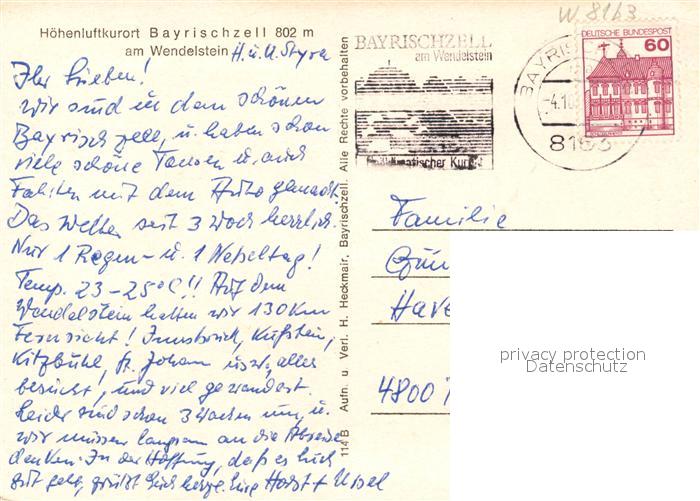 W 8163
Höhenluftkurort Bayrischzell 802 m
am Wendelstein H. u. U. Styra
Ihr Lieben!
wir sind in dem schönen
Bayrischzell, u. haben schon
viele schöne Touren u. auch
Fahrten mit dem Auto gemacht.
Das Wetter seit 3 Woch herrlich.
Nur 1 Regen- u. 1 Nebeltag!
Temp. 23-25°C!! Auf dem
Wendelstein hatten wir 130 Km
Fernsicht! Innsbruck, Kufstein,
Kitzbühl, St. Johann usw. alles
besucht, und viel gewandert.
Leider sind schon 3 Wochen um, u.
wir müssen langsam an die Abreise
denken. In der Hoffnung, daß es Euch
gut geht, grüßt Euch herzl. Eure Horst + Ursel
114 B Aufn. u. Verl. H. Heckmair, Bayrischzell. Alle Rechte vorbehalten
BAYRISCHZELL
am Wendelstein
Heilklimatischer Kurort
BAYRISC
-4.10
8163
DEUTSCHE BUNDESPOST
60
Familie
Gün
Have
4800
privacy protection
Datenschutz